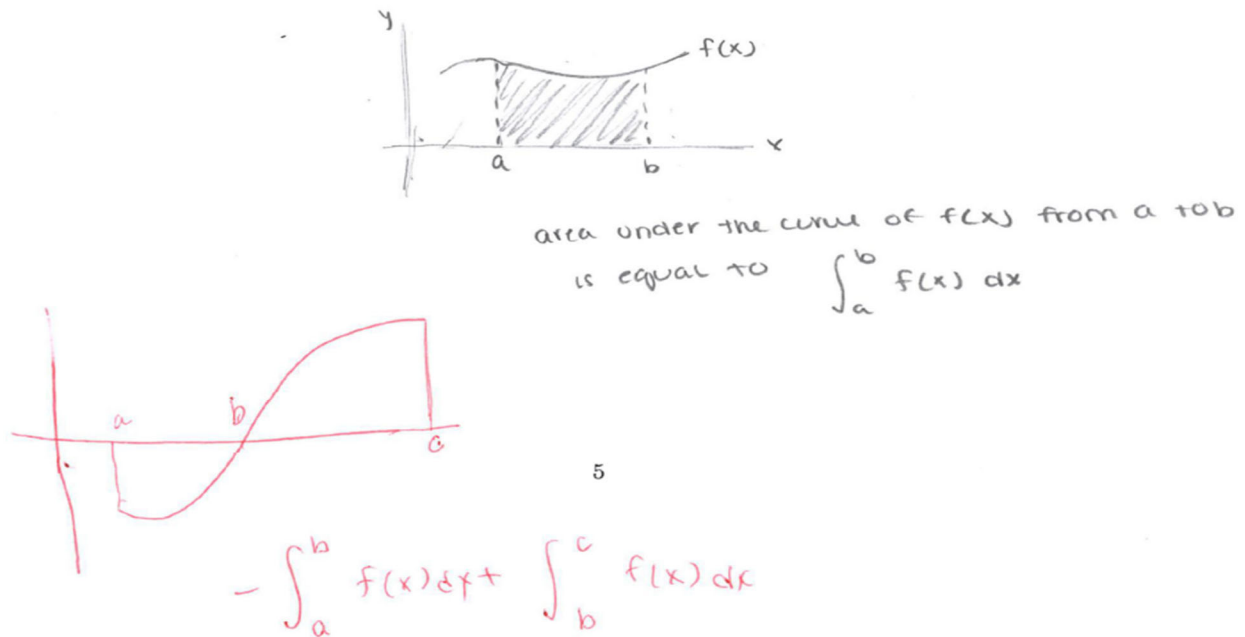 y
f(x)
a
b
x
area under the curve of f(x) from a to b
is equal to ∫_a^b f(x) dx
a
b
c
5
- ∫_a^b f(x) dx + ∫_b^c f(x) dx